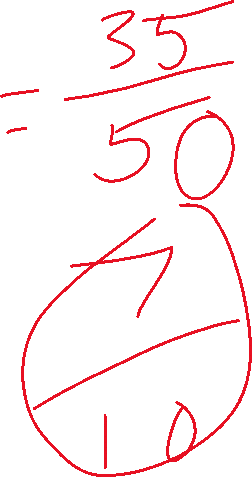 = 35/50
7/10